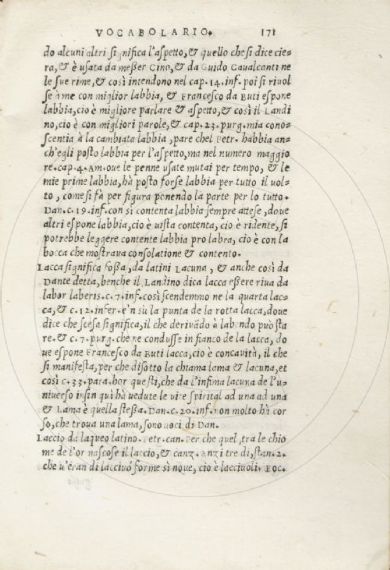 VOCABOLARIO. 171
do alcuni altri significa l'aspetto, & quello che si dice cie-
ra, & è usata da meßer Cino, & da Guido Cavalcanti ne
le sue rime, & così intendono nel cap. 14. inf. poi si rivol
se à me con miglior labbia, & Francesco da Buti espone
labbia, cio è migliore parlare & aspetto, & così il Landi
no, cio è con migliori parole, & cap. 23. purg. mia cono-
scentia à la cambiata labbia, pare che l Petr. habbia an-
ch'egli posto labbia per l'aspetto, ma nel numero maggio
re. cap. 4. Am. oue le penne usate mutai per tempo, & le
mie prime labbia, hà posto forse labbia per tutto il uol-
to, come si fà per figura ponendo la parte per lo tutto.
Dan. c. 19. inf. con sì contenta labbia sempre attese, doue
altri espone labbia, cio è uista contenta, cio è ridente, si
potrebbe leggere contente labbia pro labra, cio è con la
bocca che mostraua consolatione & contento.
Lacca significa foßa, da latini Lacuna, & anche così da
Dante detta, benche il Landino dica lacca eßere riua da
labor laberis. c. 7. inf. così scendemmo ne la quarta lac-
ca, & c. 12. infer. e'n sù la punta de la rotta lacca, doue
dice che scesa significa, il che deriuādo à labendo può sta
re. & c. 7. purg. che ne condusse in fianco de la lacca, do
ue espone Francesco da Buti lacca, cio è concavità, il che
si manifesta, per che disotto la chiama lama & lacuna, et
così c. 33. para. hor questi, che da l'infima lacuna de l'u-
niuerso infin qui hà uedute le uite spiritali ad una ad una
& Lama è quella steßa. Dan. c. 20. inf. non molto hà cor
so, che troua una lama, sono uoci di Dan.
Laccio da laqueo latino. Petr. can. Per che quel, tra le chio
me de l'or nascose il laccio, & canz. anzi tre dì, stan. 2.
che u'eran di lacciuò forme sì noue, cio è lacciuoli. Boc.